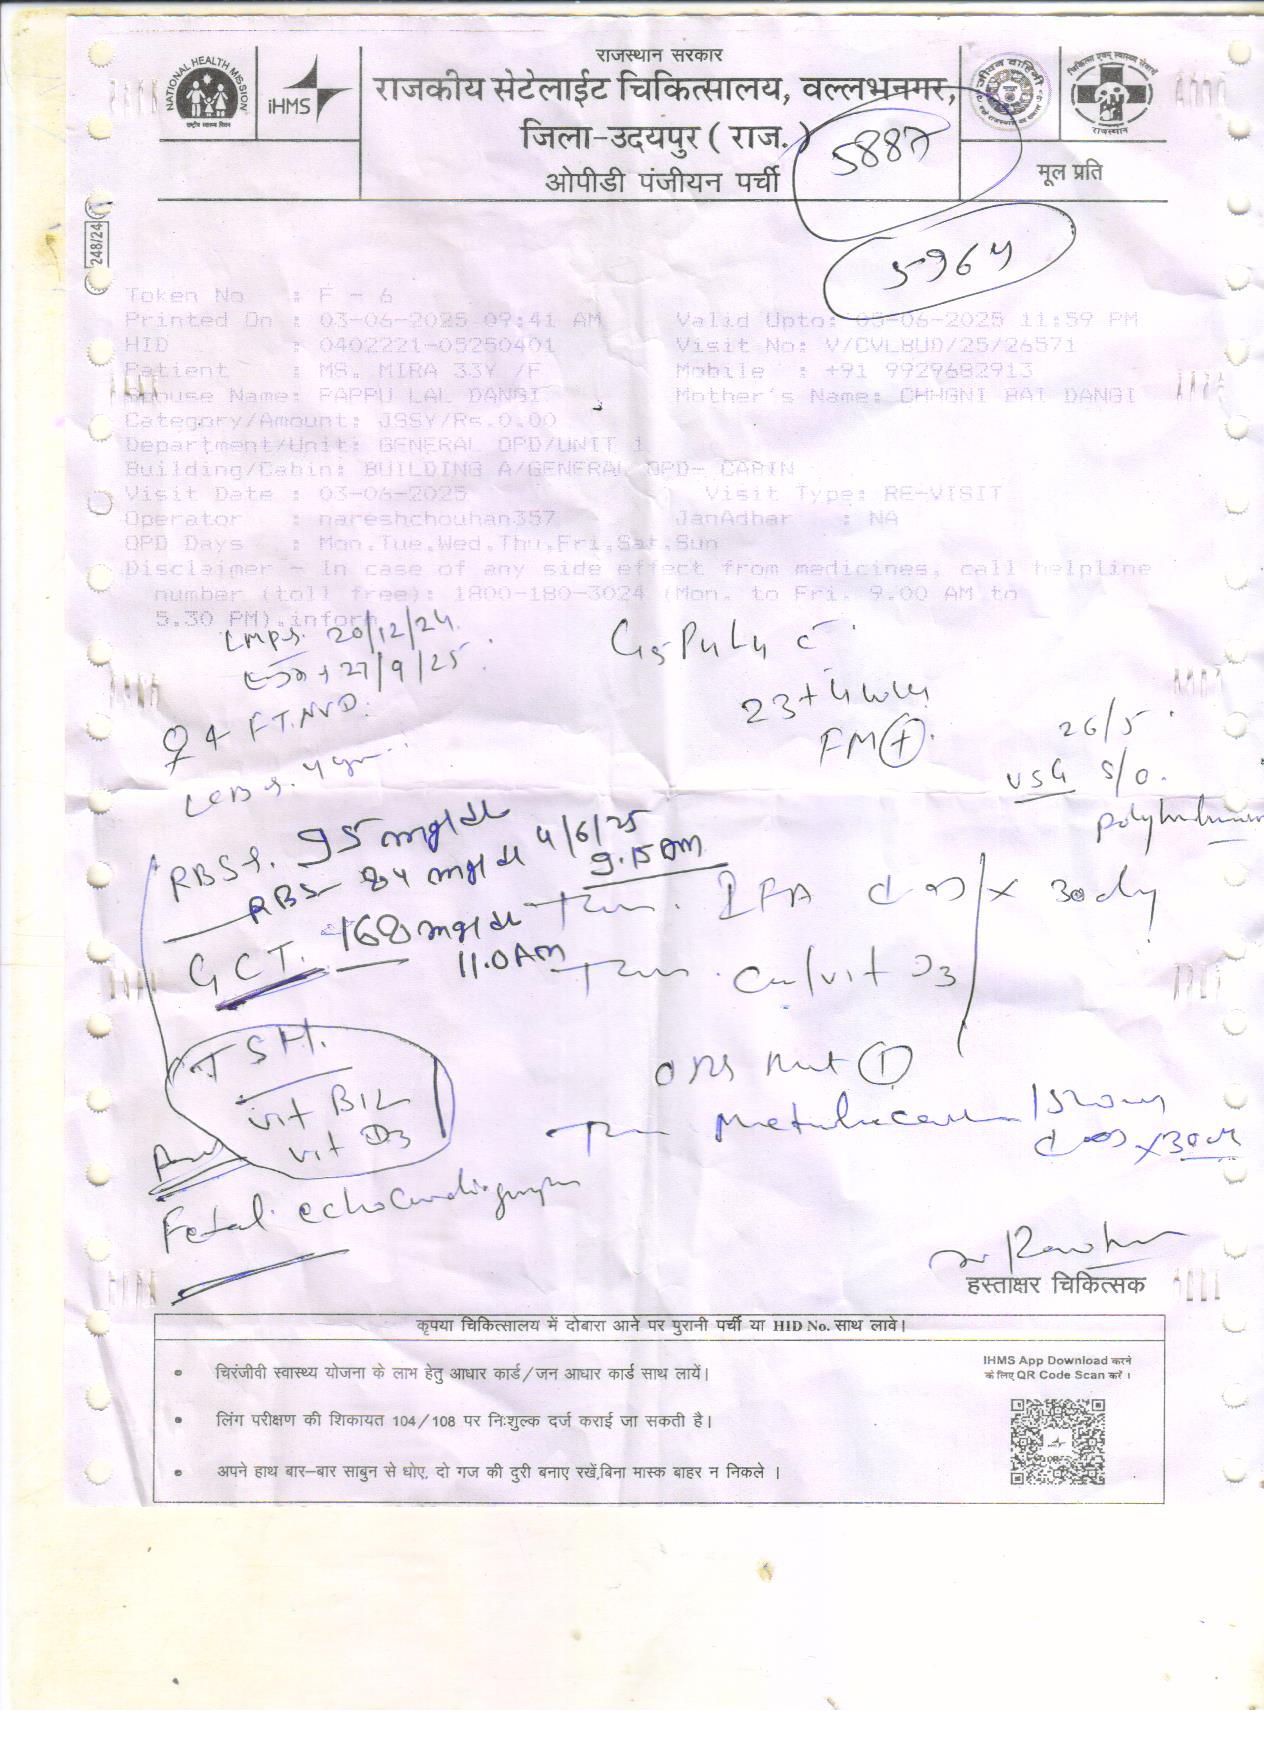 राजस्थान सरकार
राजकीय सेटेलाईट चिकित्सालय, वल्लभनगर,
जिला-उदयपुर ( राज. )
ओपीडी पंजीयन पर्ची
मूल प्रति
NATIONAL HEALTH MISSION
राष्ट्रीय स्वास्थ्य मिशन
iHMS
राजस्थान
5887
5964
248/24
Token No : F - 6
Printed On : 03-06-2025 09:41 AM Valid Upto: 03-06-2025 11:59 PM
HID : 0402221-05250401 Visit No: V/CVLBUD/25/26571
Patient : MS. MIRA 33Y /F Mobile : +91 9929682913
Spouse Name: PAPPU LAL DANGI Mother's Name: CHHGNI BAI DANGI
Category/Amount: JSSY/Rs.0.00
Department/Unit: GENERAL OPD/UNIT 1
Building/Cabin: BUILDING A/GENERAL OPD- CABIN
Visit Date : 03-06-2025 Visit Type: RE-VISIT
Operator : nareshchouhan357 JanAdhar : NA
OPD Days : Mon,Tue,Wed,Thu,Fri,Sat,Sun
Disclaimer - In case of any side effect from medicines, call helpline
number (toll free): 1800-180-3024 (Mon. to Fri. 9.00 AM to
5.30 PM).inform
20/12/24
27/9/25
G5P4L4 c
23+4 wks
FM +
4 FT.NVD
LCB 4 yr
26/5
USG S/O
polyhydramnios
RBS 95 mg/dl
RBS- 84 mg/dl 4/6/25
9.15 AM
GCT. 168 mg/dl
11.0 AM
IFA OD x 30 day
Ca/vit D3
TSH.
vit B12
vit D3
ORS 1
30
Fetal echocardiography
हस्ताक्षर चिकित्सक
कृपया चिकित्सालय में दोबारा आने पर पुरानी पर्ची या HID No. साथ लावे।
• चिरंजीवी स्वास्थ्य योजना के लाभ हेतु आधार कार्ड/जन आधार कार्ड साथ लायें।
• लिंग परीक्षण की शिकायत 104/108 पर निःशुल्क दर्ज कराई जा सकती है।
• अपने हाथ बार-बार साबुन से धोए, दो गज की दूरी बनाए रखें,बिना मास्क बाहर न निकले ।
IHMS App Download करने
के लिए QR Code Scan करें ।